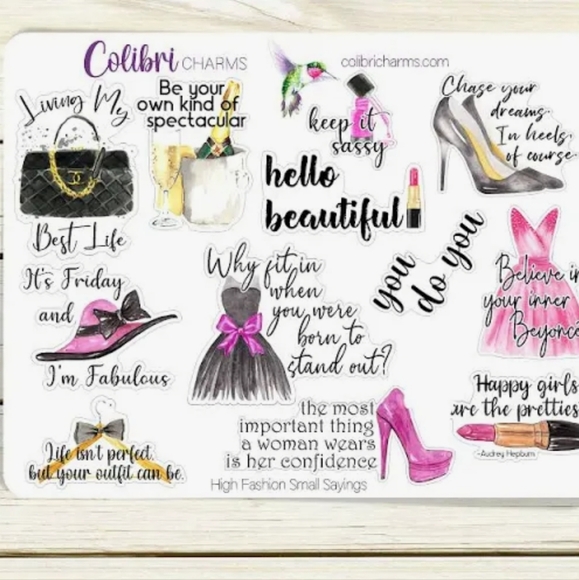 Colibri CHARMS
colibricharms.com
Living My
Best Life
Be your
own kind of
spectacular
keep it
sassy
Chase your
dreams.
In heels
of course
hello
beautiful
you
do you
It's Friday
and
I'm Fabulous
Why fit in
when
you were
born to
stand out?
Believe in
your inner
Beyonce
Life isn't perfect,
but your outfit can be.
the most
important thing
a woman wears
is her confidence
Happy girls
are the prettiest
-Audrey Hepburn
High Fashion Small Sayings